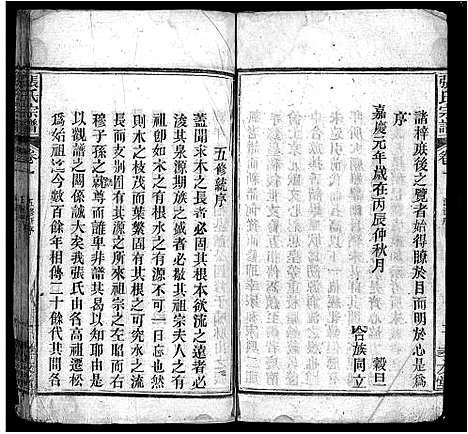 張氏宗譜
諸梓庶後之覽者始得瞭於目而明於心是為
序
嘉慶元年歲在丙辰仲秋月 穀旦
合族同立
五修統序
蓋聞求木之長者必固其根本欲流之遠者必
浚其泉源期族之盛者必敍其祖宗夫人之有
祖宗如木之有根水之有源不可一日忘也然
則木之枝茂而葉繁固有其根而究水之流
長而支別固有其源之所來祖宗之左昭而右
穆子孫之尊而誰卑非譜其曷以知耶由是
以觀譜之關係誠大矣我張氏由各高祖遷松
為始祖迄今數百餘年相傳二十餘代其間各
張氏宗譜
卷一